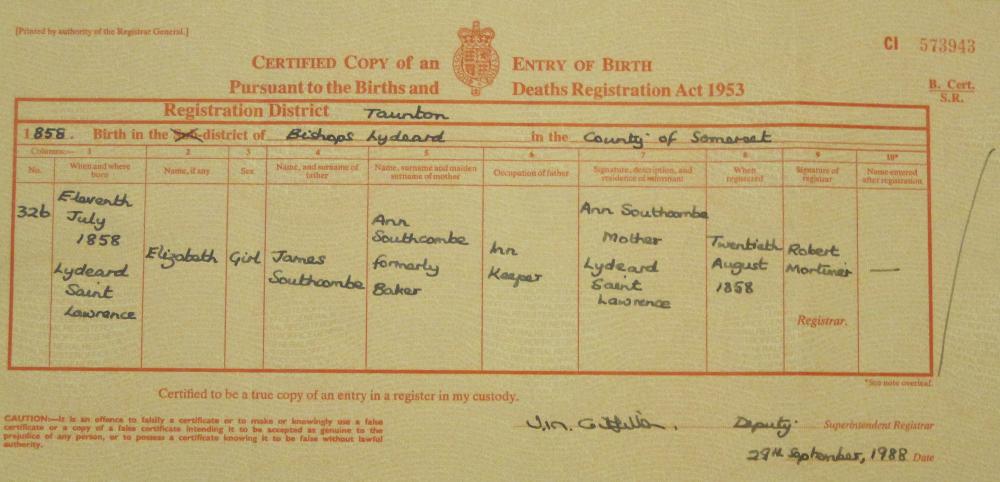 [Printed by authority of the Registrar General.]
CI 573943
CERTIFIED COPY of an ENTRY OF BIRTH
Pursuant to the Births and Deaths Registration Act 1953
B. Cert.
S.R.
Registration District Taunton
1858. Birth in the Sub-district of Bishops Lydeard in the County of Somerset
Columns:— 1 2 3 4 5 6 7 8 9 10*
No.
When and where
born
Name, if any
Sex
Name, and surname of
father
Name, surname and maiden
surname of mother
Occupation of father
Signature, description, and
residence of informant
When
registered
Signature of
registrar
Name entered
after registration
326
Eleventh
July
1858
Lydeard
Saint
Lawrence
Elizabeth
Girl
James
Southcombe
Ann
Southcombe
formerly
Baker
Inn
Keeper
Ann Southcombe
Mother
Lydeard
Saint
Lawrence
Twentieth
August
1858
Robert
Mortimer
—
Registrar.
*See note overleaf.
Certified to be a true copy of an entry in a register in my custody.
CAUTION:—It is an offence to falsify a certificate or to make or knowingly use a false
certificate or a copy of a false certificate intending it to be accepted as genuine to the
prejudice of any person, or to possess a certificate knowing it to be false without lawful
authority.
Deputy. Superintendent Registrar
29th September, 1988 Date